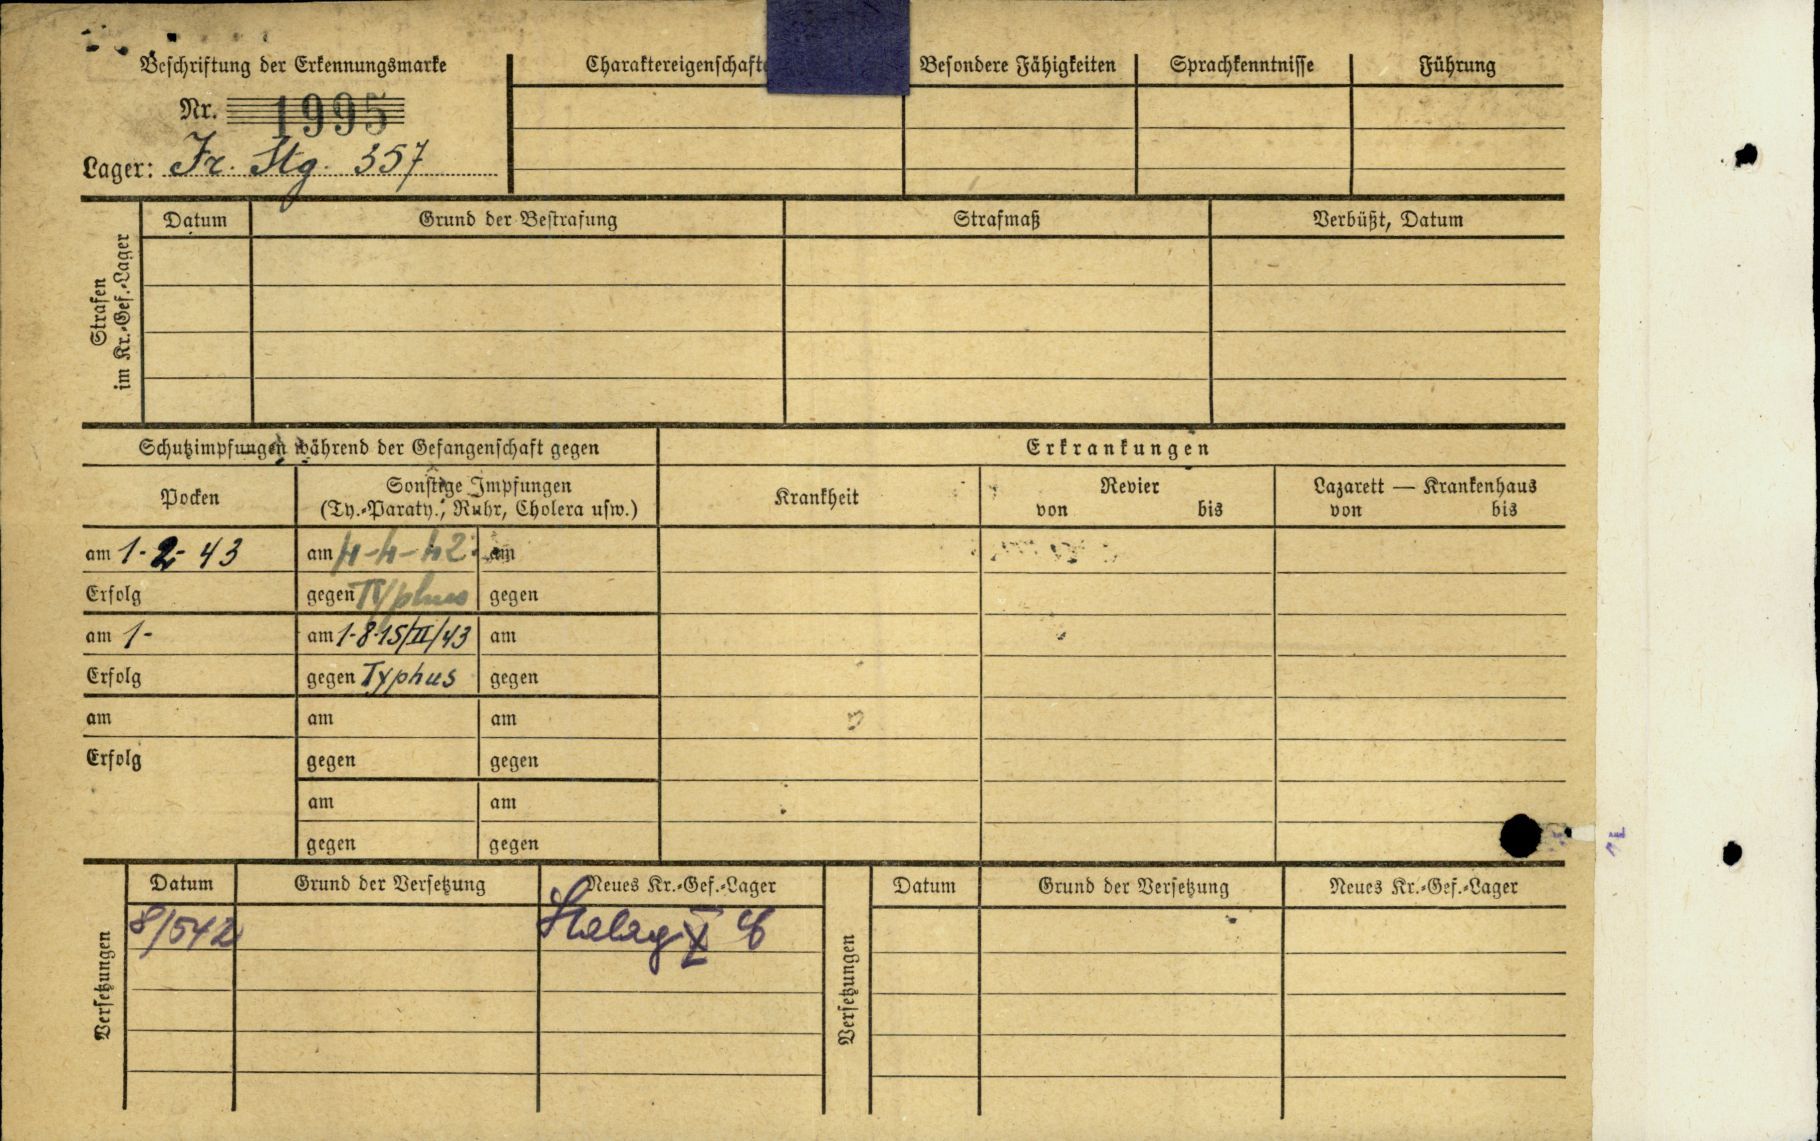 Beschriftung der Erkennungsmarke
Nr. 1995
Lager: Fr. Stg. 357
Charaktereigenschaft
Besondere Fähigkeiten
Sprachkenntnisse
Führung
Strafen
im Kr.-Gef.-Lager
Datum
Grund der Bestrafung
Strafmaß
Verbüßt, Datum
Schutzimpfungen während der Gefangenschaft gegen
Erkrankungen
Pocken
Sonstige Impfungen
(Ty.-Paraty., Ruhr, Cholera usw.)
Krankheit
Revier
von bis
Lazarett — Krankenhaus
von bis
am 1-2-43 am 4-4-42 am
Erfolg gegen Typhus gegen
am 1- am 1-8-15/II/43 am
Erfolg gegen Typhus gegen
am am am
Erfolg gegen gegen
am am
gegen gegen
Versetzungen
Datum Grund der Versetzung Neues Kr.-Gef.-Lager
8/542 Stalag X
Versetzungen
Datum Grund der Versetzung Neues Kr.-Gef.-Lager